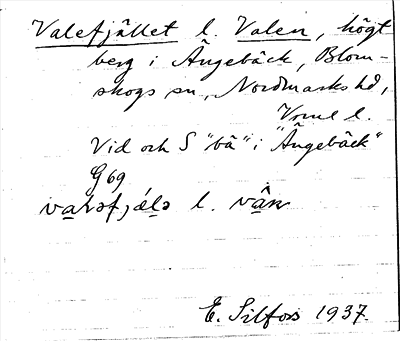 Valefjället l. Valen, högt
berg i Ängebäck, Blom-
skogs sn, Nordmarks hd,
Vrml l.
Vid och S "bä" i "Ängebäck"
G 69
l.
E. Silfors 1937.